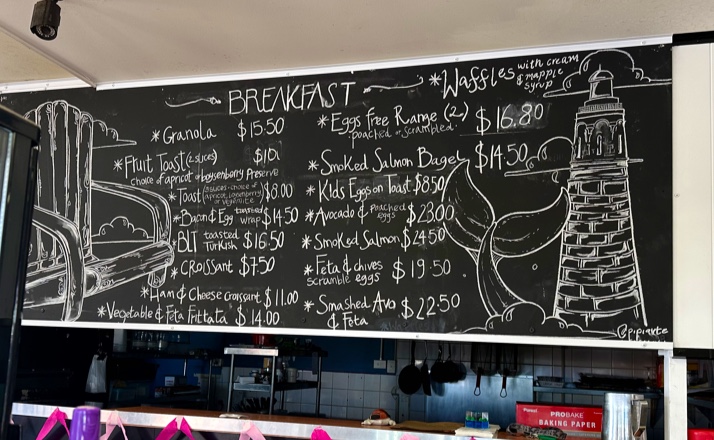 BREAKFAST
*Granola $15.50
*Fruit Toast (2 slices) $10
choice of apricot or boysenberry Preserve
*Toast (2 slices - choice of apricot, boysenberry or vegemite) $8.00
*Bacon & Egg toasted wrap $14.50
*BLT toasted Turkish $16.50
*CROISSANT $7.50
*Ham & Cheese Croissant $11.00
*Vegetable & Feta Frittata $14.00
*Waffles with cream & mapple syrup
*Eggs Free Rame (2) $16.80
poached or scrambled.
*Smoked Salmon Bagel $14.50
*Kids Eggs on Toast $8.50
*Avocado & Poached eggs $23.00
*Smoked Salmon $24.50
*Feta & chives scramble eggs $19.50
*Smashed Avo & Feta $22.50
@pipiarte
PROBAKE
BAKING PAPER